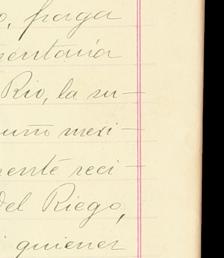 o, fraga
mentaria
Rio, la su-
uno mexi-
mente reci-
del Riego,
i quienes